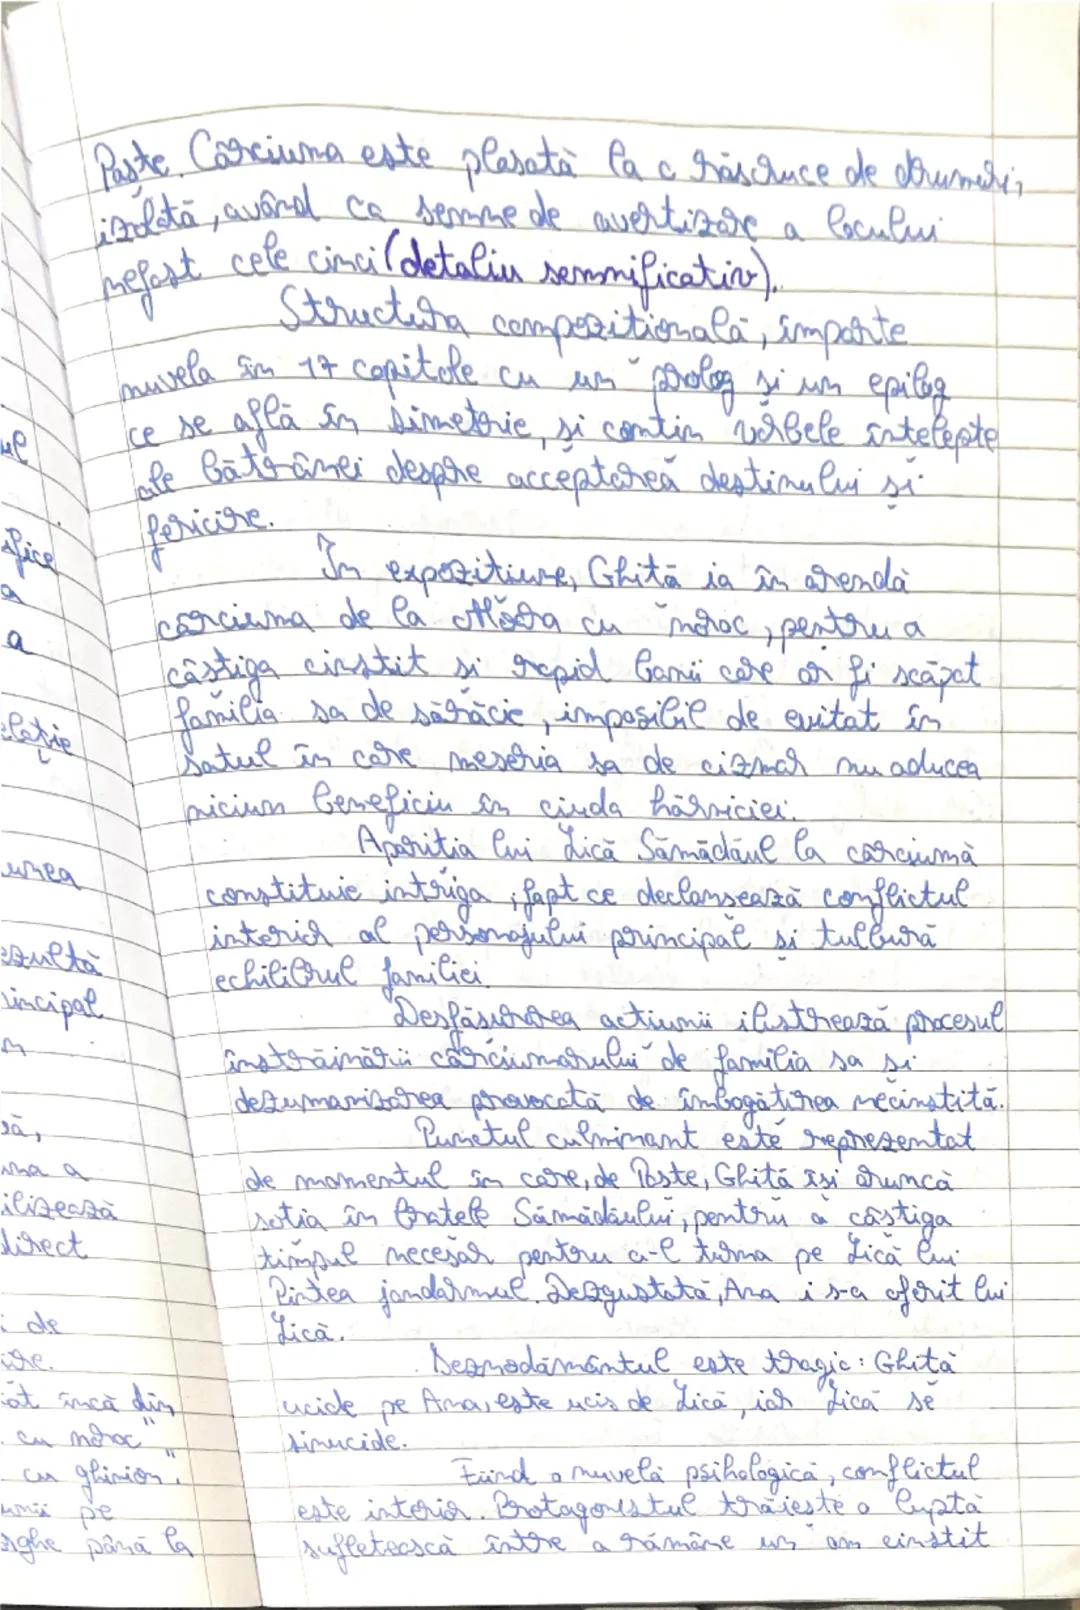 Paște. Cârciuma este plasată la o răscruce de drumuri,
izolată, având ca semne de avertizare a locului
nefast cele cinci (detaliu semnificativ).
Structura compozițională, împarte
nuvela în 17 capitole cu un prolog și un epilog
ce se află în simetrie, și conțin vorbele înțelepte
ale bătrânei despre acceptarea destinului și
fericire.
În expozițiune, Ghiță ia în arendă
cârciuma de la Moara cu noroc, pentru a
câștiga cinstit si rapid banii care ar fi scăpat
familia sa de sărăcie, imposibil de evitat în
satul în care meseria sa de cizmar nu aducea
niciun beneficiu în ciuda hărniciei.
Apariția lui Lică Sămădăul la cârciumă
constituie intriga, fapt ce declansează conflictul
interior al personajului principal și tulbură
echilibrul familiei.
Desfășurarea acțiunii ilustrează procesul
înstrăinării cârciumarului de familia sa și
dezumanizarea provocată de îmbogățirea necinstită.
Punctul culminant este reprezentat
de momentul în care, de Paste, Ghiță își aruncă
soția în brațele Sămădăului, pentru a câștiga
timpul necesar pentru a-l turna pe Lică lui
Pintea jandarmul. Dezgustată, Ana i s-a oferit lui
Lică.
Deznodământul este tragic: Ghiță
ucide pe Ana, este ucis de Lică, iar Lică se
sinucide.
Fiind o nuvelă psihologică, conflictul
este interior. Protagonistul trăiește o luptă
sufletească între a rămâne un om cinstit
ul
ifice
a
a
elație
unea
ezultă
rincipal
n
ră,
una a
ilizează
direct
i de
ire.
at încă din
cu noroc"
cu ghinion".
unii pe
arghe până la